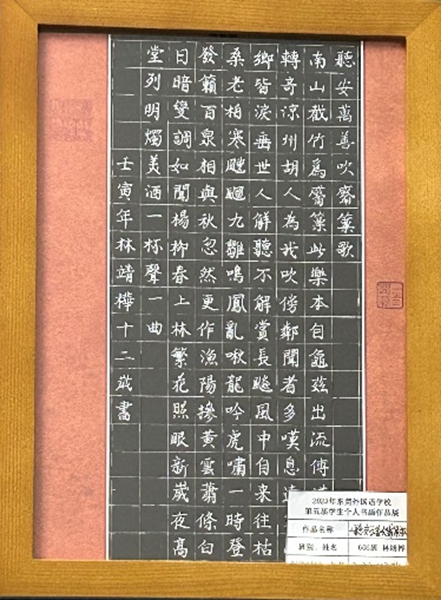 聽安萬善吹觱篥歌
南山截竹為觱篥此樂本自龜茲出流傳
轉奇涼州胡人為我吹傍鄰聞者多嘆息
鄉皆淚垂世人解聽不解賞長飈風中自来往枯
桑老柏寒颼飀九雛鳴鳳亂啾龍吟虎嘯一時登
發籟百泉相與秋忽然更作漁陽摻黃雲蕭條白
日暗變調如聞楊柳春上林繁花照眼新歲夜高
堂列明燭美酒一杯聲一曲
壬寅年林靖樺十二歲書
2023年东莞外国语学校
第五届学生个人书画作品展
作品名称
班别、姓名 606班 林靖桦